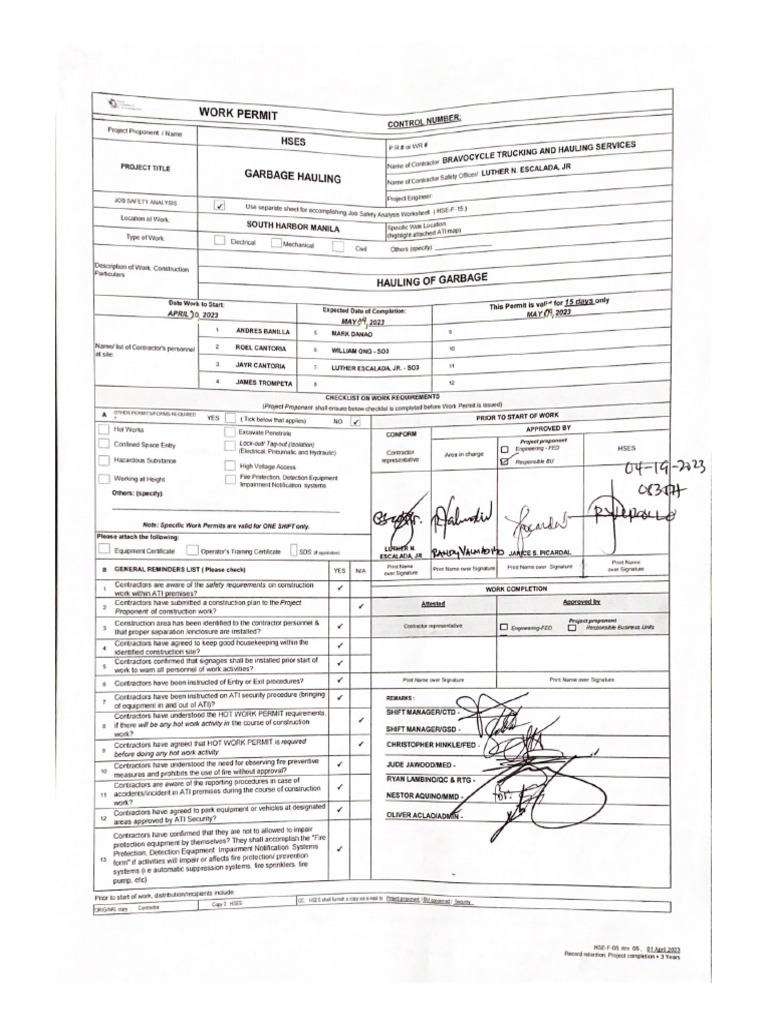 WORK PERMIT
CONTROL NUMBER:
Project Proponent / Name
HSES
P R # or WR #
PROJECT TITLE
GARBAGE HAULING
Name of Contractor BRAVOCYCLE TRUCKING AND HAULING SERVICES
Name of Contractor Safety Officer LUTHER N. ESCALADA, JR
Project Engineer
JOB SAFETY ANALYSIS
✓ Use separate sheet for accomplishing Job Safety Analysis Worksheet ( HSE-F-15 )
Location of Work
SOUTH HARBOR MANILA
Specific Work Location
(highlight attached ATI map)
Type of Work:
Electrical
Mechanical
Civil
Others (specify)
Description of Work, Construction
Particulars
HAULING OF GARBAGE
Date Work to Start:
APRIL 20, 2023
Expected Date of Completion:
MAY 09, 2023
This Permit is valid for 15 days only
MAY 09, 2023
Name/ list of Contractor's personnel
at site:
1 ANDRES BANILLA
5 MARK DANAO
9
2 ROEL CANTORIA
6 WILLIAM ONG - SO3
10
3 JAYR CANTORIA
7 LUTHER ESCALADA, JR. - SO3
11
4 JAMES TROMPETA
8
12
CHECKLIST ON WORK REQUIREMENTS
(Project Proponent shall ensure below checklist is completed before Work Permit is issued)
A OTHER PERMITS/FORMS REQUIRED ?
YES
( Tick below that applies)
NO ✓
Hot Works
Excavate Penetrate
Confined Space Entry
Lock-out/ Tag-out (Isolation)
(Electrical, Pneumatic and Hydraulic)
Hazardous Substance
High Voltage Access
Working at Height
Fire Protection, Detection Equipment
Impairment Notification systems
Others: (specify)
Note: Specific Work Permits are valid for ONE SHIFT only.
Please attach the following:
Equipment Certificate
Operator's Training Certificate
SDS (if applicable)
PRIOR TO START OF WORK
CONFORM
APPROVED BY
Contractor
representative
Area in charge
Project proponent
Engineering - FED
✓ Responsible BU
HSES
04-19-2023
0830H
LUTHER N.
ESCALADA, JR
JANICE S. PICARDAL
Print Name
over Signature
Print Name over Signature
Print Name over Signature
Print Name
over Signature
B GENERAL REMINDERS LIST ( Please check)
YES
N/A
1 Contractors are aware of the safety requirements on construction
work within ATI premises? ✓
2 Contractors have submitted a construction plan to the Project
Proponent of construction work? ✓
3 Construction area has been identified to the contractor personnel &
that proper separation /enclosure are installed? ✓
4 Contractors have agreed to keep good housekeeping within the
identified construction site? ✓
5 Contractors confirmed that signages shall be installed prior start of
work to warn all personnel of work activities? ✓
6 Contractors have been instructed of Entry or Exit procedures? ✓
7 Contractors have been instructed on ATI security procedure (bringing
of equipment in and out of ATI)? ✓
8 Contractors have understood the HOT WORK PERMIT requirements,
if there will be any hot work activity in the course of construction
work? ✓
9 Contractors have agreed that HOT WORK PERMIT is required
before doing any hot work activity ✓
10 Contractors have understood the need for observing fire preventive
measures and prohibits the use of fire without approval? ✓
11 Contractors are aware of the reporting procedures in case of
accidents/incident in ATI premises during the course of construction
work? ✓
12 Contractors have agreed to park equipment or vehicles at designated
areas approved by ATI Security? ✓
13 Contractors have confirmed that they are not to allowed to impair
protection equipment by themselves? They shall accomplish the "Fire
Protection, Detection Equipment Impairment Notification Systems
form" if activities will impair or affects fire protection/ prevention
systems (i.e automatic suppression systems, fire sprinklers, fire
pump, etc) ✓
WORK COMPLETION
Attested
Approved by
Contractor representative
Project proponent
Engineering-FED
Responsible Business Units
Print Name over Signature
Print Name over Signature
REMARKS :
SHIFT MANAGER/CTD -
SHIFT MANAGER/GSD -
CHRISTOPHER HINKLE/FED -
JUDE JAWOOD/MED -
RYAN LAMBINO/QC & RTG -
NESTOR AQUINO/MMD -
OLIVER ACLAO/ADMIN -
Prior to start of work, distribution/recipients include:
ORIGINAL copy Contractor
Copy 2 HSES
CC: HSES shall furnish a copy via e-mail to Project proponent / BU concerned / Security
HSE-F-05 rev 05 , 01 April 2023
Record retention: Project completion + 3 Years